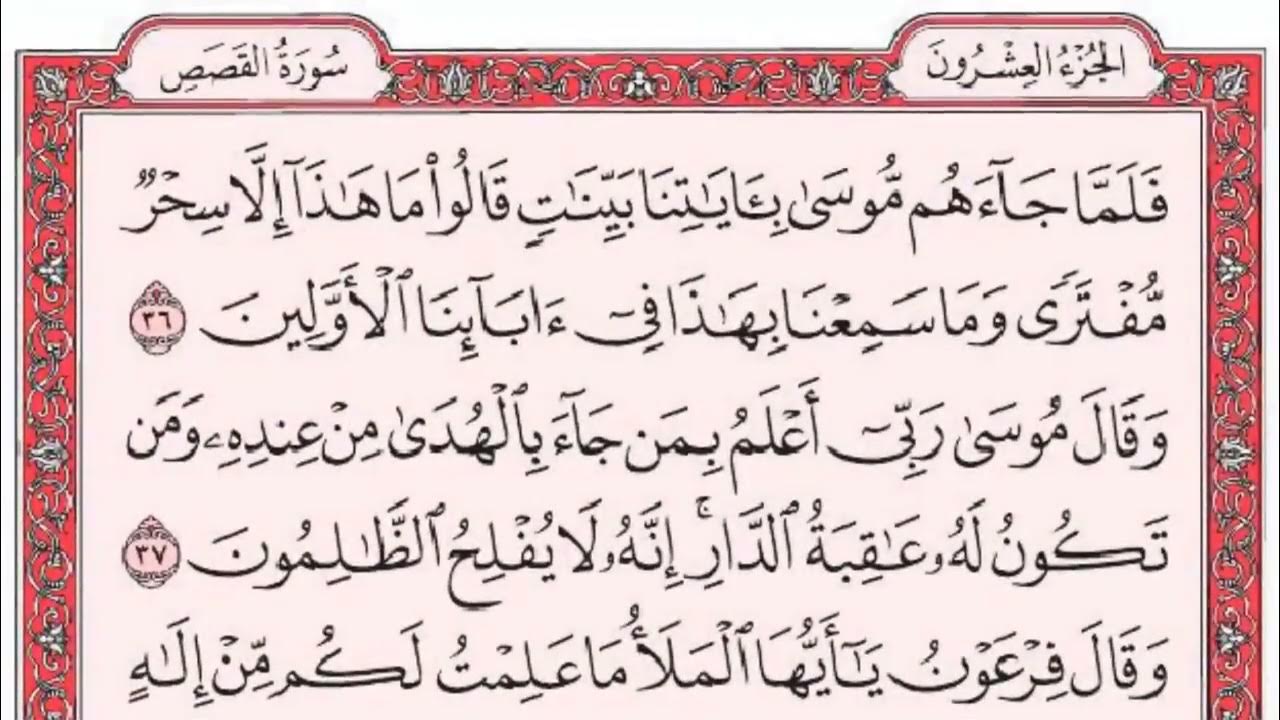 الجُزْءُ العِشْرُونَ
سُورَةُ القَصَصِ
فَلَمَّا جَآءَهُم مُّوسَىٰ بِـَٔايَـٰتِنَا بَيِّنَـٰتٍ قَالُوا۟ مَا هَـٰذَآ إِلَّا سِحْرٌ
مُّفْتَرًى وَمَا سَمِعْنَا بِهَـٰذَا فِىٓ ءَابَآئِنَا ٱلْأَوَّلِينَ ٣٦
وَقَالَ مُوسَىٰ رَبِّىٓ أَعْلَمُ بِمَن جَآءَ بِٱلْهُدَىٰ مِنْ عِندِهِۦ وَمَن
تَكُونُ لَهُۥ عَـٰقِبَةُ ٱلدَّارِ ۚ إِنَّهُۥ لَا يُفْلِحُ ٱلظَّـٰلِمُونَ ٣٧
وَقَالَ فِرْعَوْنُ يَـٰٓأَيُّهَا ٱلْمَلَأُ مَا عَلِمْتُ لَكُم مِّنْ إِلَـٰهٍ